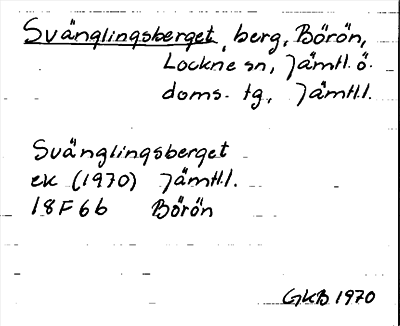 Svänglingsberget, berg, Börön,
Lockne sn, Jämtl. ö.
doms. tg, Jämtl.l.
Svänglingsberget
ek (1970) Jämtl.l.
18F6b Börön
GKB 1970